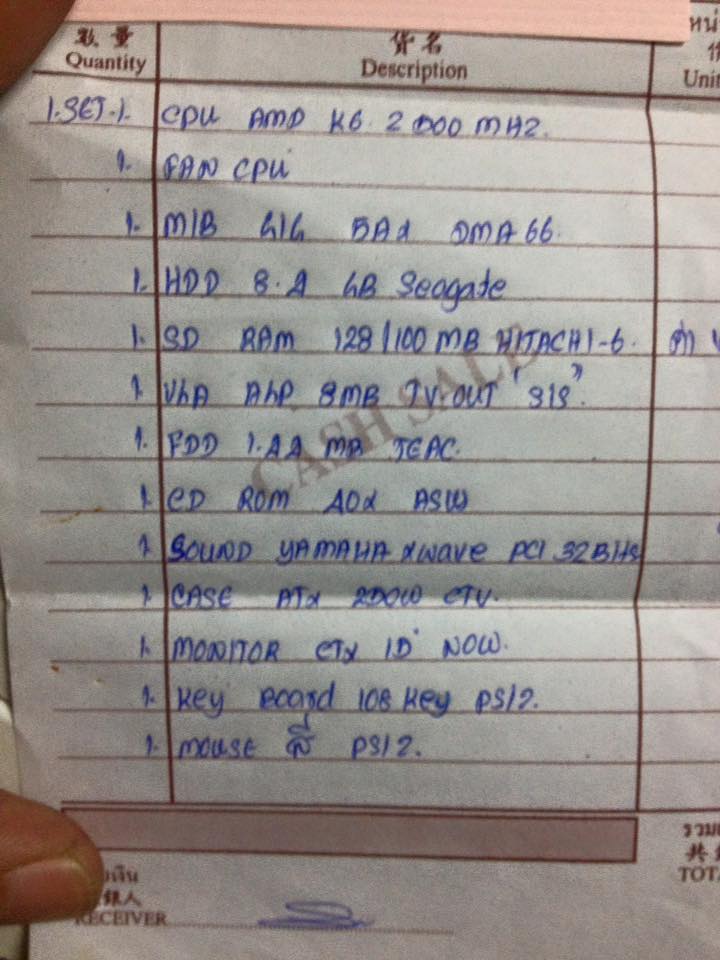 數 量 貨 名 หน่
Quantity Description Unit
1.SET.1. CPU AMD K6.2 500 MHZ.
1. FAN CPU
1. M/B GIG 5AX DMA66.
1. HDD 8.4 GB Seagate
1. SD RAM 128/100 MB HITACHI-6.
1. VGA AGP 8MB TV-OUT "SIS".
1. FDD 1.44 MB TEAC.
1. CD ROM 40X ASW
1. SOUND YAMAHA XWAVE PCI 32Bits
1. CASE ATX 250W CTV.
1. MONITOR CTX 15" NOW.
1. Key Board 108 Key PS/2.
1. mouse สี่ PS/2.
CASH SALE
รวม
共
TOTA
เงิน
銀人
RECEIVER